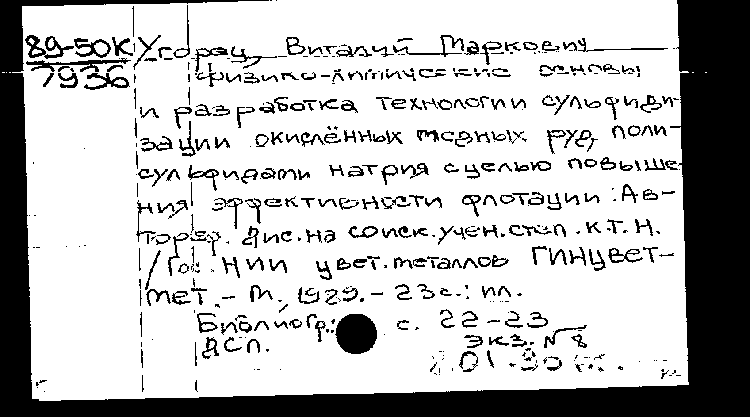 89-50К Угорец, Виталий Маркович
7936 Физико-химические основы
и разработка технологии сульфиди-
зации окислённых медных руд поли-
сульфидами натрия с целью повыше-
ния эффективности флотации: Ав-
тореф. дис. на соиск. учен. степ. к.т.н.
/ Гос. НИИ цвет. металлов ГИНЦВЕТ-
мет. - М., 1989. - 23 с.: ил.
Библиогр.: с. 22-23
ДСП. экз. № 8